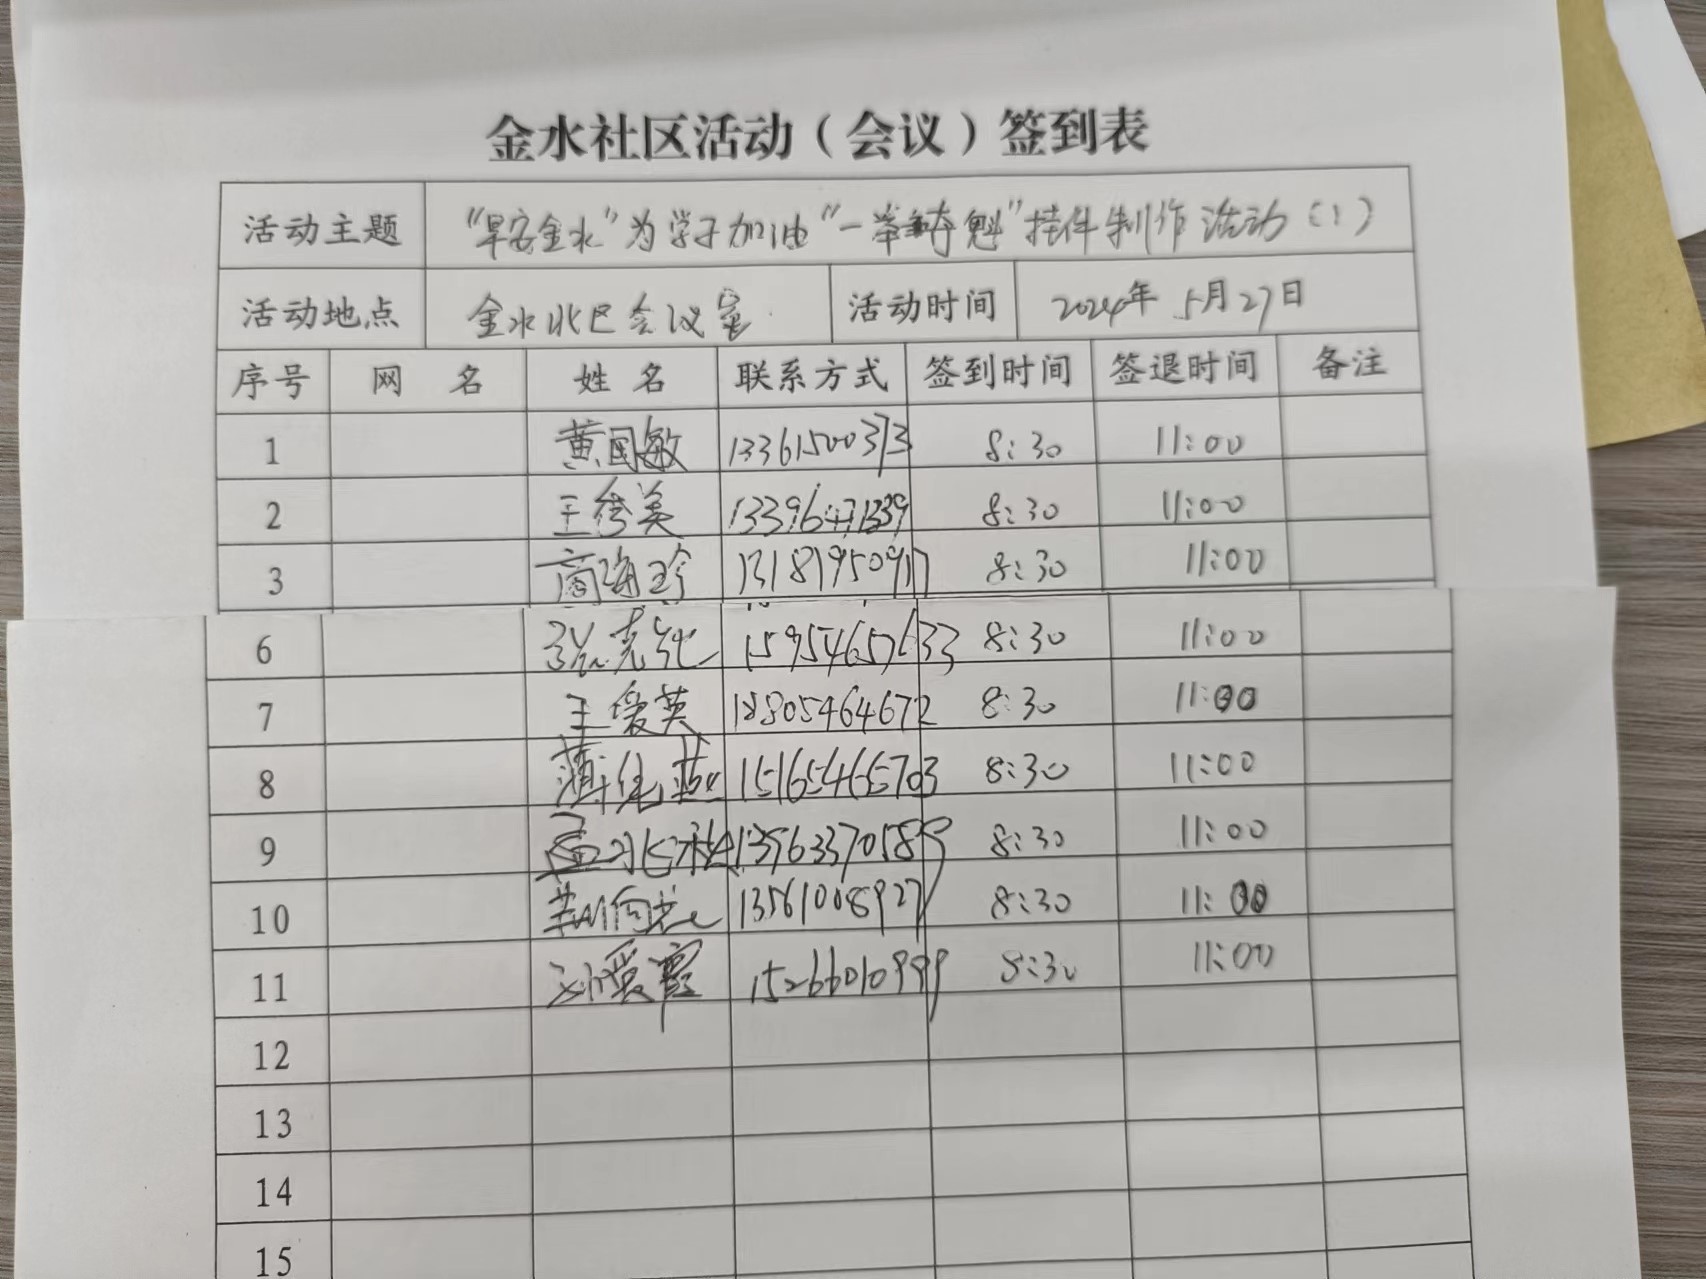 金水社区活动（会议）签到表
活动主题 “早安金水”为学子加油“一举夺魁”挂件制作活动（1）
活动地点 金水北区会议室 活动时间 2024年5月27日
序号 网 名 姓 名 联系方式 签到时间 签退时间 备注
1 黄国敏 13361500373 8:30 11:00
2 王秀美 13396471339 8:30 11:00
3 商海珍 13181950917 8:30 11:00
6 15954657633 8:30 11:00
7 王爱英 18805464672 8:30 11:00
8 薄纯燕 15165465703 8:30 11:00
9 13963370589 8:30 11:00
10 13561008927 8:30 11:00
11 孙爱霞 15266010999 8:30 11:00
12
13
14
15